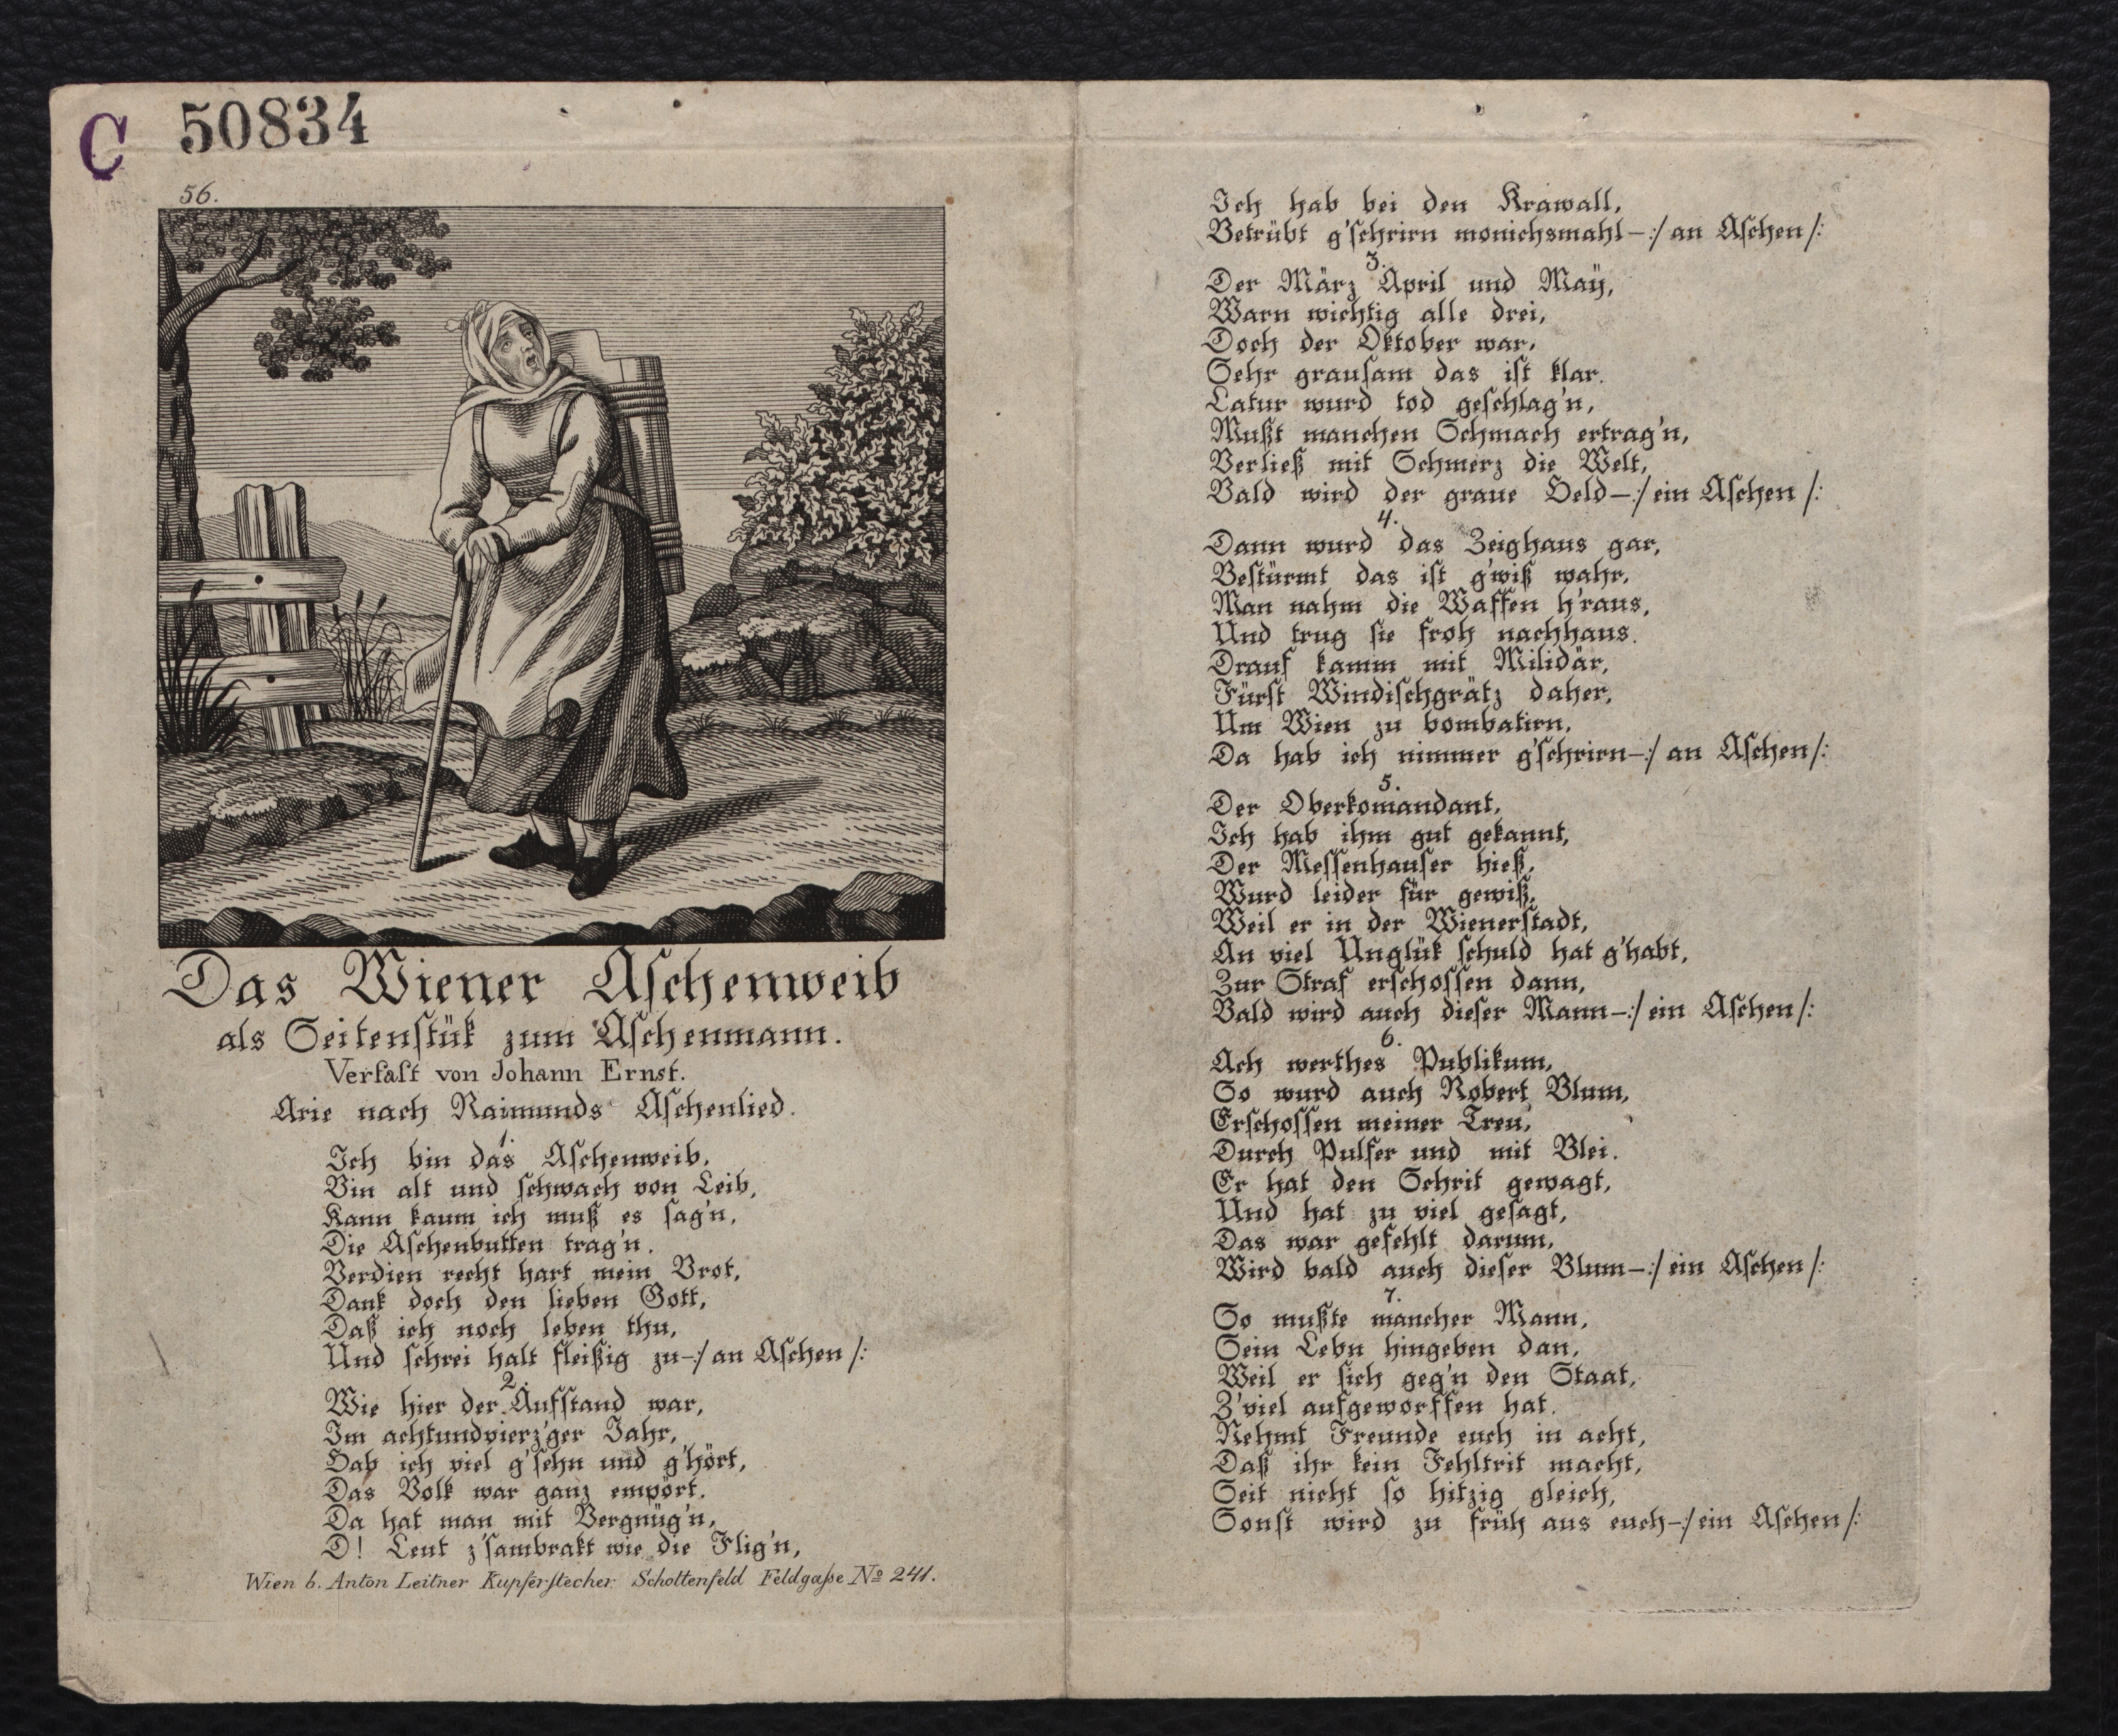 C 50834
56.
Das Wiener Aſchenweib
als Seitenſtük zum Aſchenmann.
Verfaſt von Johann Ernst.
Arie nach Raimunds Aſchenlied.
1.
Ich bin das Aſchenweib,
Bin alt und ſchwach von Leib,
Kann kaum ich muß es ſag'n,
Die Aſchenbutten trag'n.
Verdien recht hart mein Brot,
Dank doch den lieben Gott,
Daß ich noch leben thu,
Und ſchrei halt fleißig zu-:/ an Aſchen /:
2.
Wie hier der Aufſtand war,
Im achtundvierz'ger Jahr,
Hab ich viel g'ſehn und g'hört,
Das Volk war ganz empört.
Da hat man mit Vergnüg'n,
D! Leut z'ſambrakt wie die Flig'n,
Wien b. Anton Leitner Kupferſtecher Schottenfeld Feldgaſse No 241.
Ich hab bei den Krawall,
Betrübt g'ſchrirn monichsmahl-:/ an Aſchen /:
3.
Der März April und Maÿ,
Warn wichtig alle drei,
Doch der Oktober war,
Sehr grauſam das iſt klar.
Latur wurd tod geſchlag'n,
Mußt manchen Schmach ertrag'n,
Verließ mit Schmerz die Welt,
Bald wird der graue Held-:/ ein Aſchen /:
4.
Dann wurd das Zeighaus gar,
Beſtürmt das iſt g'wiß wahr,
Man nahm die Waffen h'raus,
Und trug ſie froh nachhaus.
Drauf kamm mit Milidär,
Fürſt Windiſchgrätz daher,
Um Wien zu bombatirn,
Da hab ich nimmer g'ſchrirn-:/ an Aſchen /:
5.
Der Oberkom̄andant,
Ich hab ihm gut gekannt,
Der Meſſenhauſer hieß,
Wurd leider für gewiß,
Weil er in der Wienerſtadt,
An viel Unglük ſchuld hat g'habt,
Zur Straf erſchoſſen dann,
Bald wird auch dieſer Mann-:/ ein Aſchen /:
6.
Ach werthes Publikum,
So wurd auch Robert Blum,
Erſchoſſen meiner Treu,
Durch Pulfer und mit Blei.
Er hat den Schrit gewagt,
Und hat zu viel geſagt,
Das war gefehlt darum,
Wird bald auch dieſer Blum-:/ ein Aſchen /:
7.
So mußte mancher Mann,
Sein Lebn hingeben dan,
Weil er ſich geg'n den Staat,
Z'viel aufgeworffen hat.
Nehmt Freunde euch in acht,
Daß ihr kein Fehltrit macht,
Seit nicht ſo hitzig gleich,
Sonſt wird zu früh aus euch-:/ ein Aſchen /: